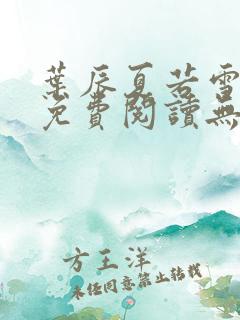 葉辰夏若雪
免費閱讀無
方王洋
未经同意禁止转载